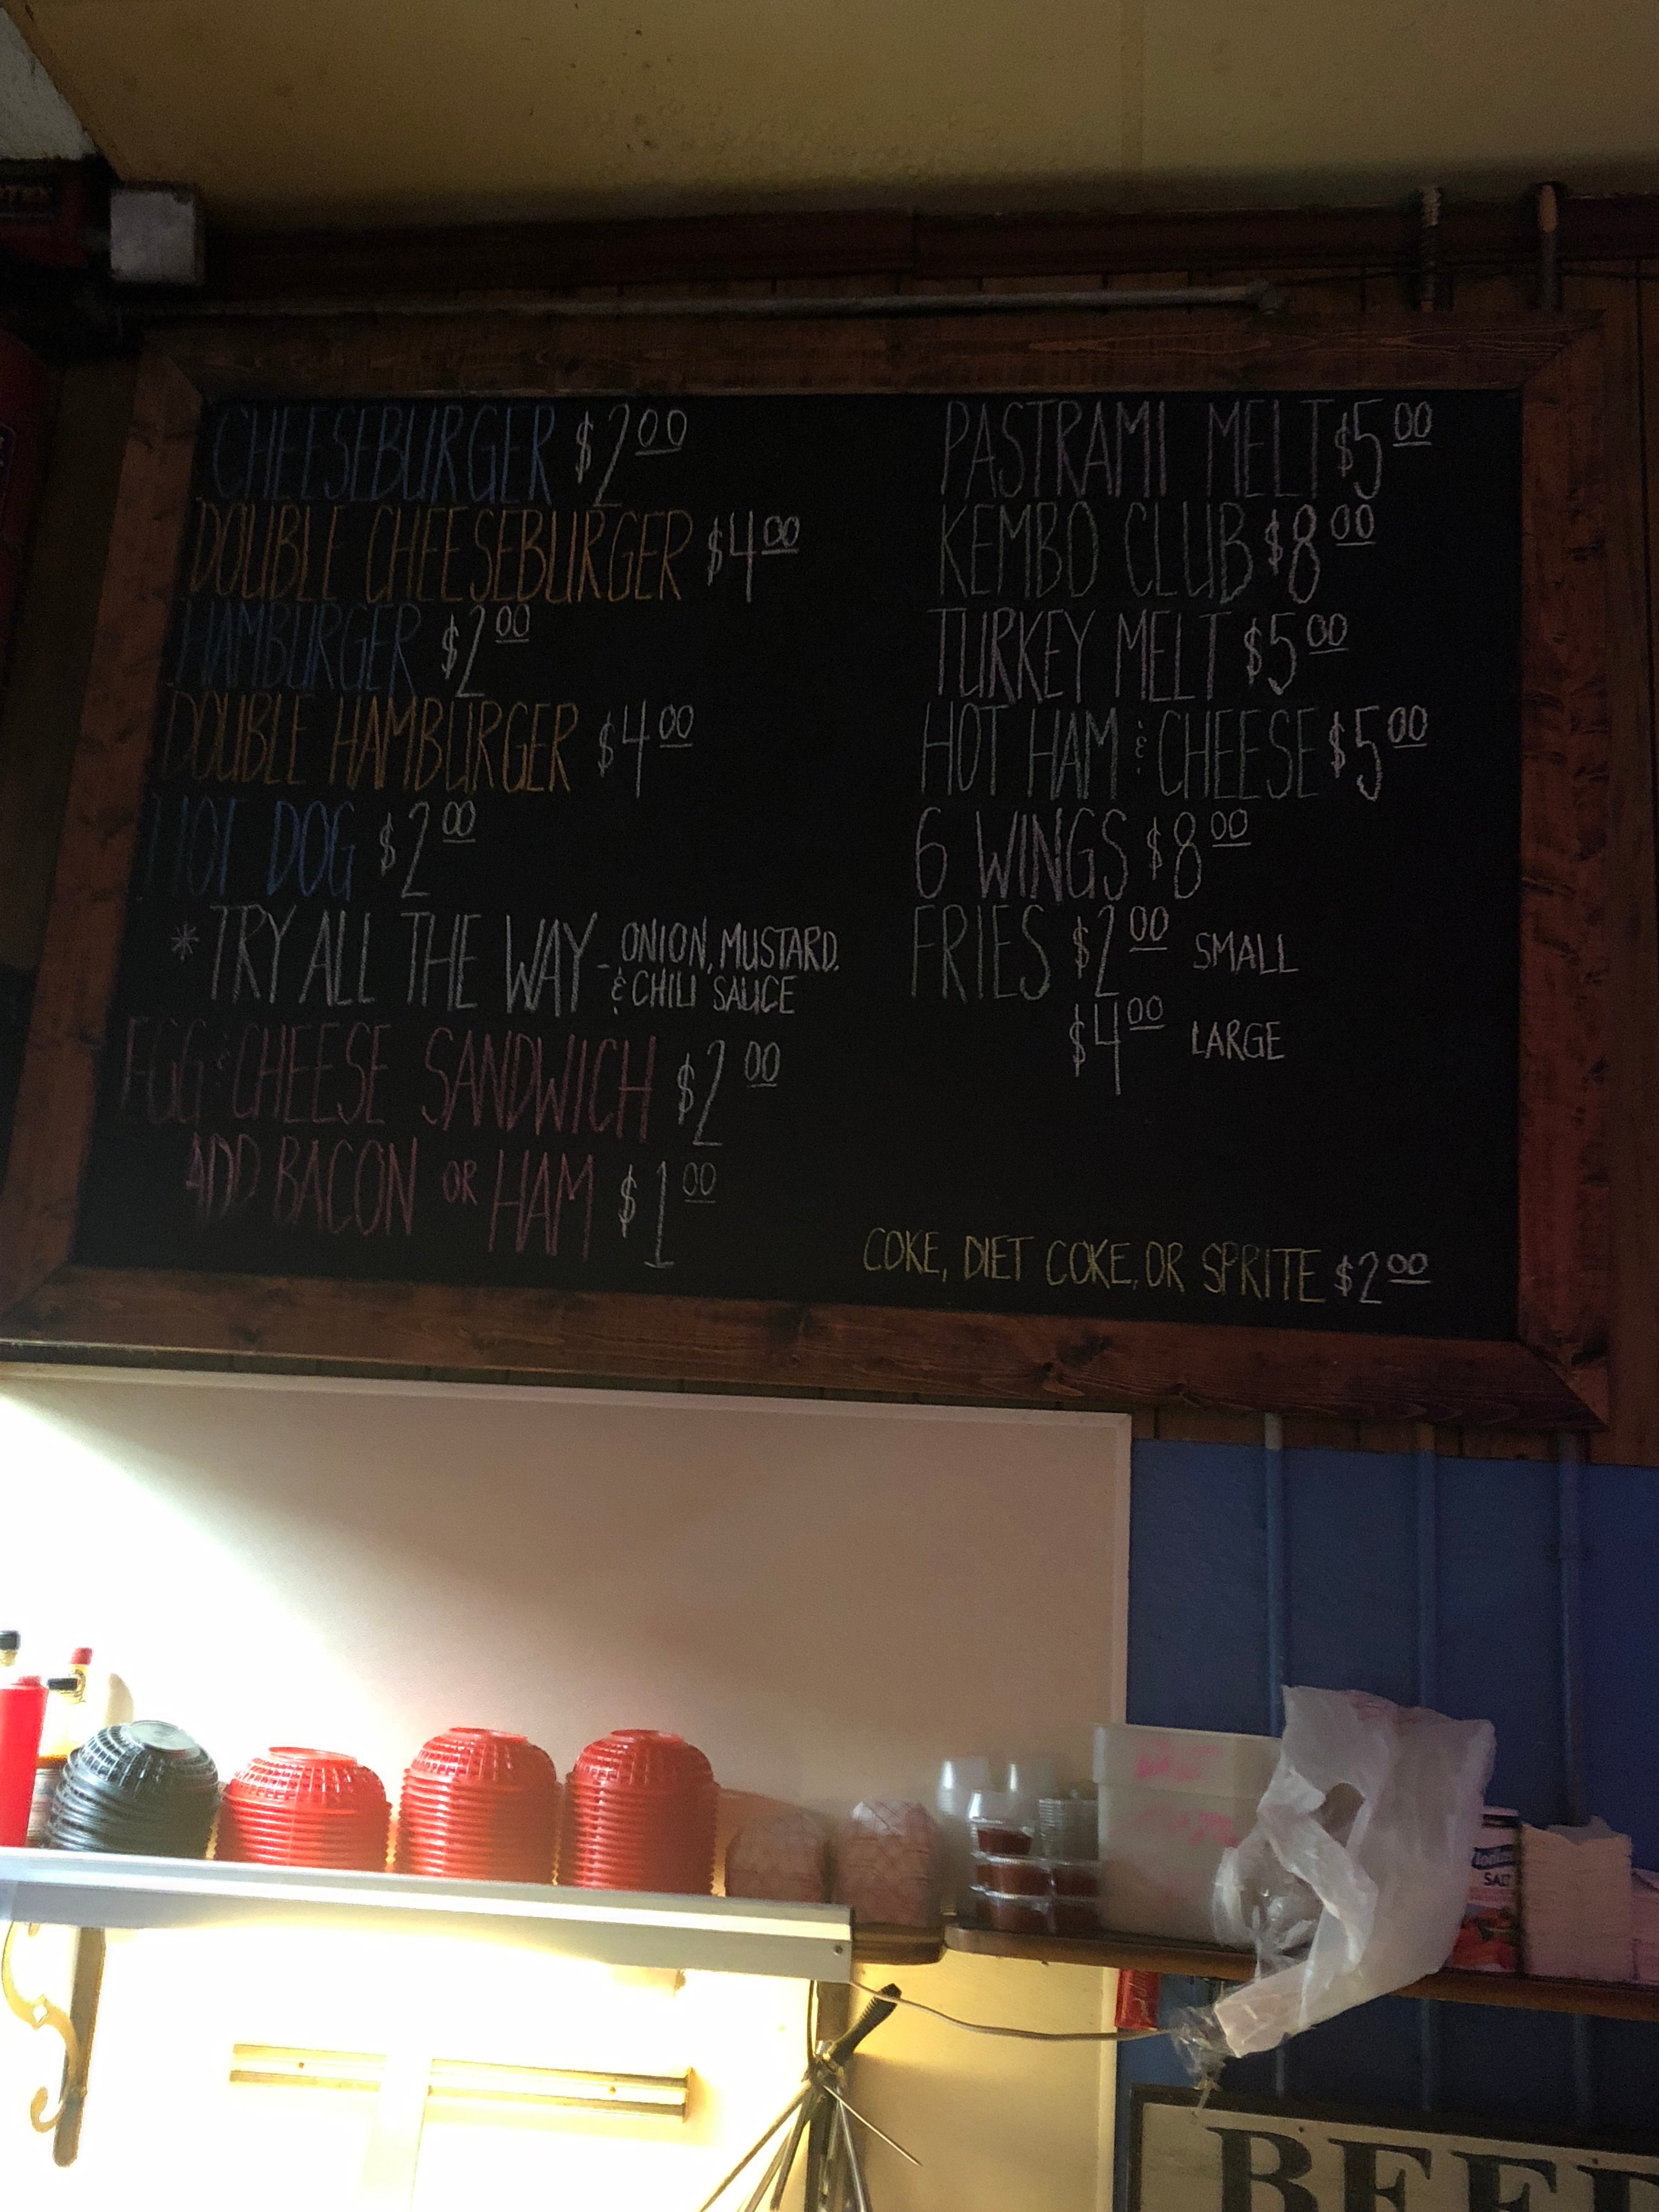 CHEESEBURGER $2.00
DOUBLE CHEESEBURGER $4.00
HAMBURGER $2.00
DOUBLE HAMBURGER $4.00
HOT DOG $2.00
*TRY ALL THE WAY - ONION, MUSTARD,
& CHILI SAUCE
EGG & CHEESE SANDWICH $2.00
ADD BACON OR HAM $1.00
PASTRAMI MELT $5.00
KEMBO CLUB $8.00
TURKEY MELT $5.00
HOT HAM & CHEESE $5.00
6 WINGS $8.00
FRIES $2.00 SMALL
$4.00 LARGE
COKE, DIET COKE, OR SPRITE $2.00
SALT